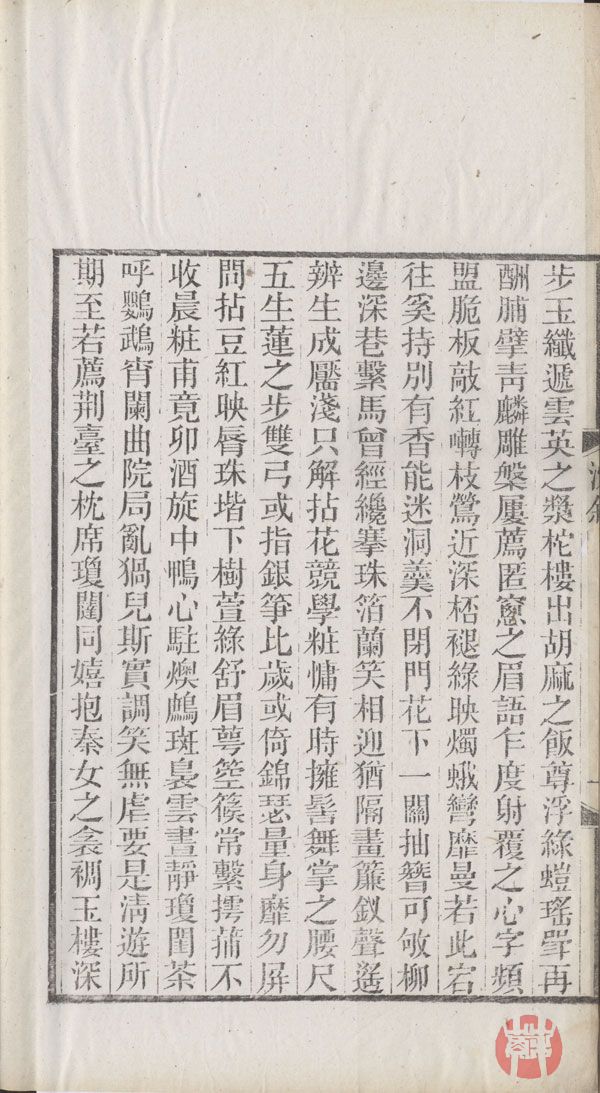 步玉纖遞雲英之漿柁樓出胡麻之飯尊浮綠螘瑤斝再
酬脯擘靑麟雕槃屢薦匿窻之眉語乍度射覆之心字頻
盟脆板敲紅囀枝鶯近深桮褪綠映燭蛾彎靡曼若此宕
往奚持別有香能迷洞羹不閉門花下一關抽簪可敂柳
邊深巷繫馬曾經纔搴珠箔蘭笑相迎猶隔畫簾釵聲遙
辨生成靨淺只解拈花競學粧慵有時擁髻舞掌之腰尺
五生蓮之步雙弓或指銀箏比歲或倚錦瑟量身靡勿屏
問拈豆紅映脣珠堦下樹萱綠舒眉萼箜篌常繫摴蒱不
收晨粧甫竟卯酒旋中鴨心駐燠鷓斑裊雲晝靜瓊閨茶
呼鸚鵡宵闌曲院局亂猧兒斯實調笑無虐要是淸遊所
期至若薦荆臺之枕席瓊闥同嬉抱秦女之衾裯玉樓深